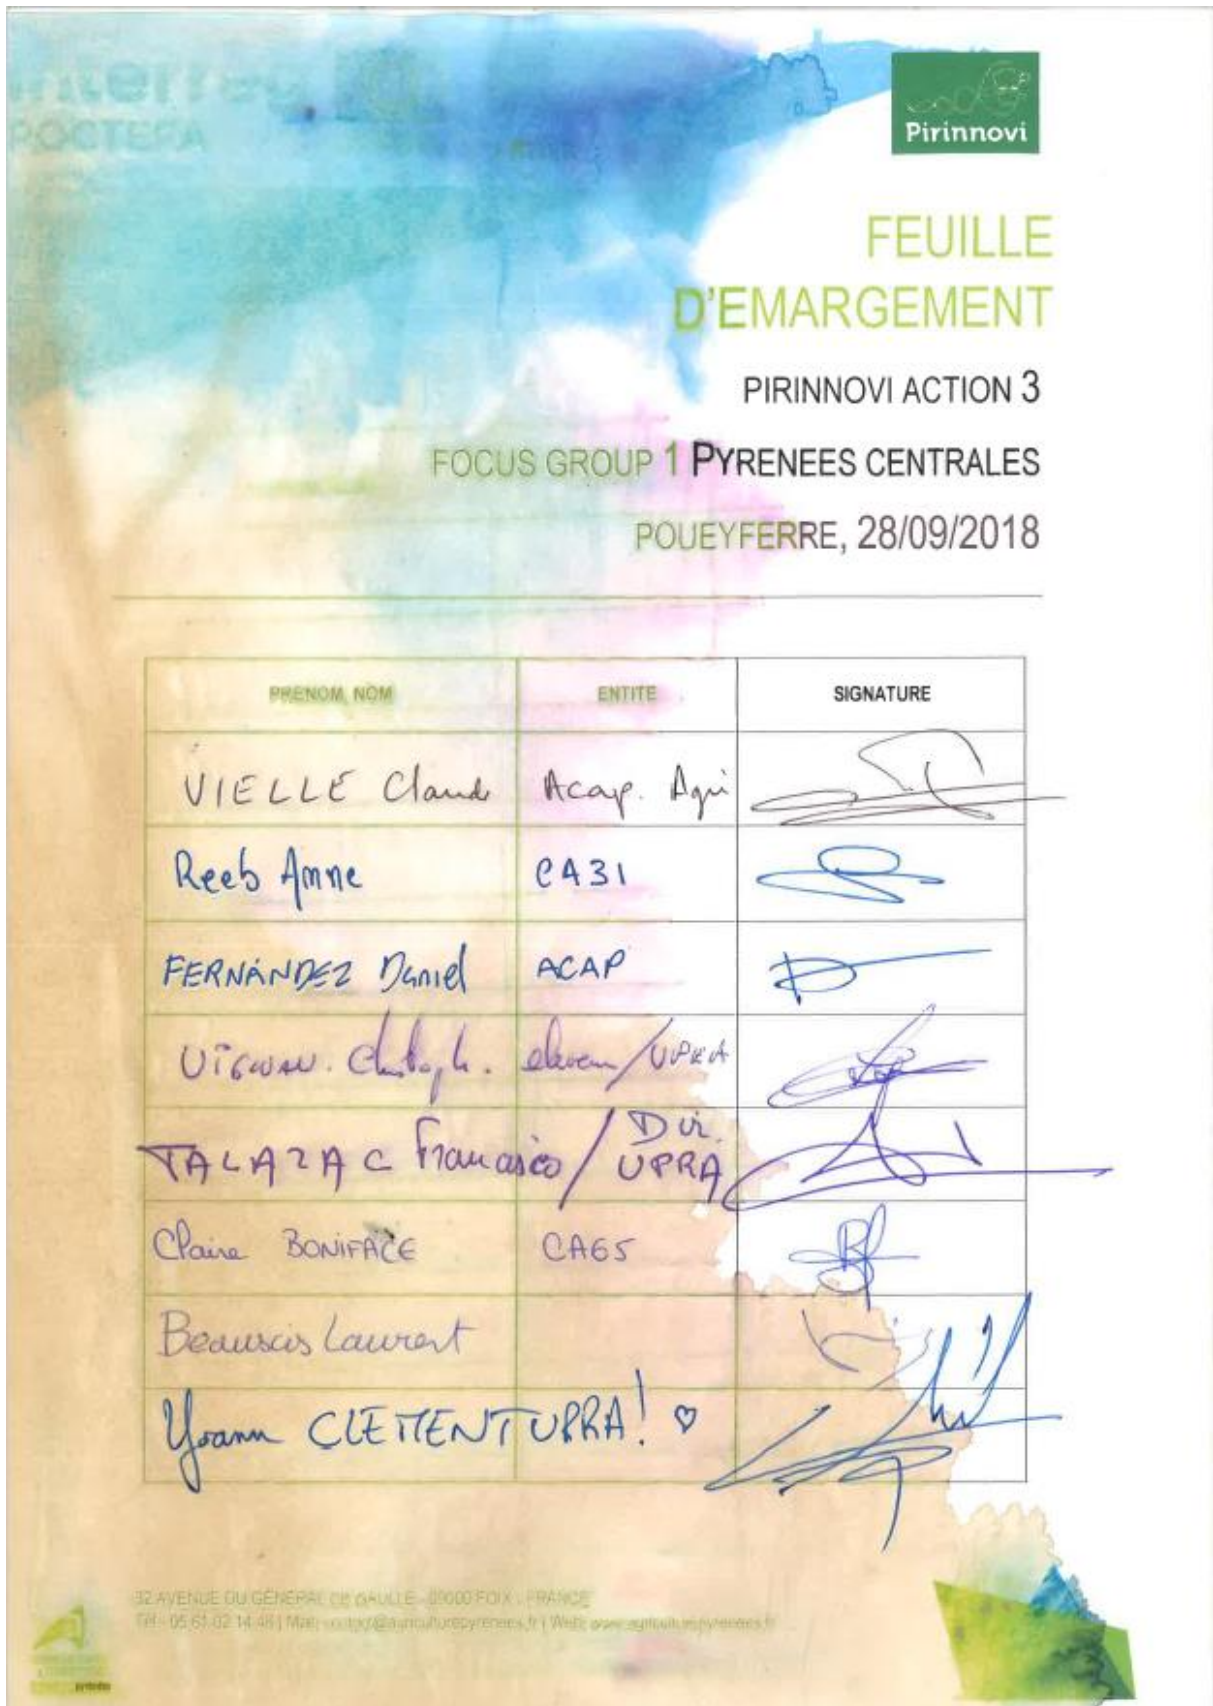 Interreg
POCTEFA
Pirinnovi
FEUILLE
D'EMARGEMENT
PIRINNOVI ACTION 3
FOCUS GROUP 1 PYRENEES CENTRALES
POUEYFERRE, 28/09/2018
PRENOM NOM ENTITE SIGNATURE
VIELLE Claude Acap. Agri
Reeb Anne CA31
FERNÁNDEZ Daniel ACAP
Christoph. eleveur/UPRA
TALAZAC Francisco / Dir. UPRA
Claire BONIFACE CA65
Beausais Laurent
Yoann CLEMENT UPRA! ♡
32 AVENUE DU GÉNÉRAL DE GAULLE - 09000 FOIX - FRANCE
Tél - 05 61 02 14 46 | Mail: | Web: www.agriculturepyrenees.fr